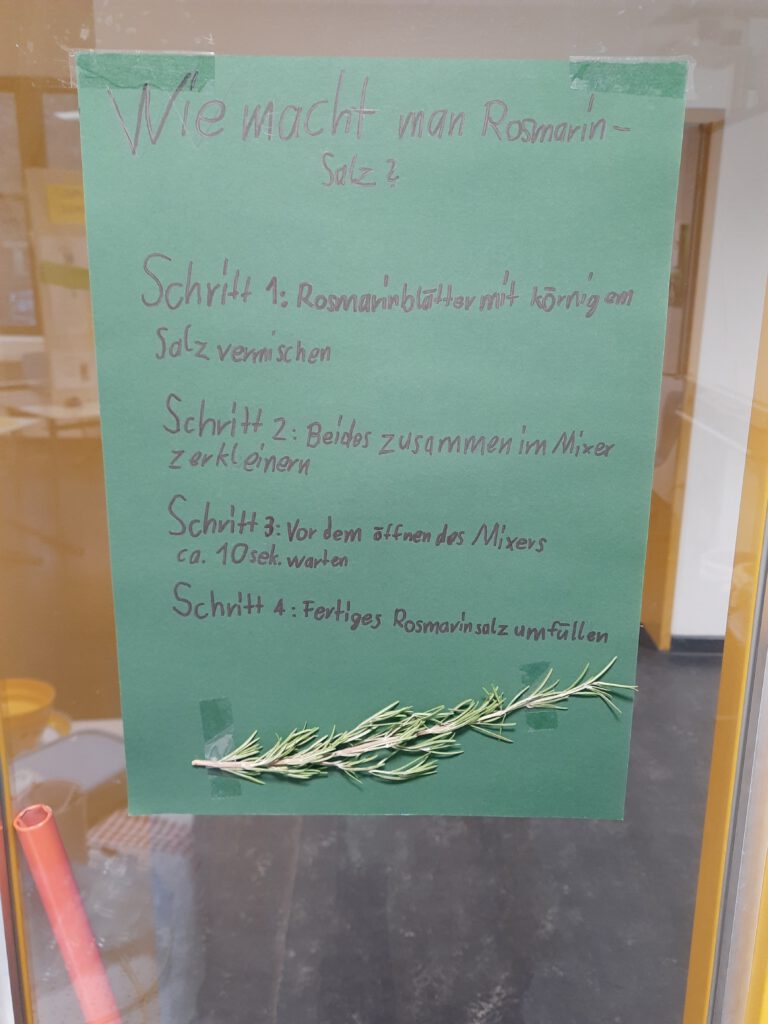 Wie macht man Rosmarin-
Salz?
Schritt 1: Rosmarinblätter mit körnigem
Salz vermischen
Schritt 2: Beides zusammen im Mixer
zerkleinern
Schritt 3: Vor dem öffnen des Mixers
ca. 10 sek. warten
Schritt 4: Fertiges Rosmarinsalz umfüllen